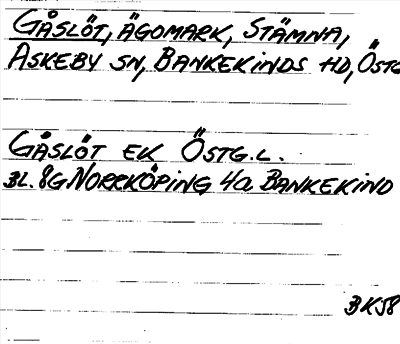 GÅSLÖT, ÄGOMARK, STÄMNA,
ASKEBY SN, BANKEKINDS HD, ÖSTG
GÅSLÖT EK ÖSTG.L.
BL. 8G NORRKÖPING 4a BANKEKIND
BK58